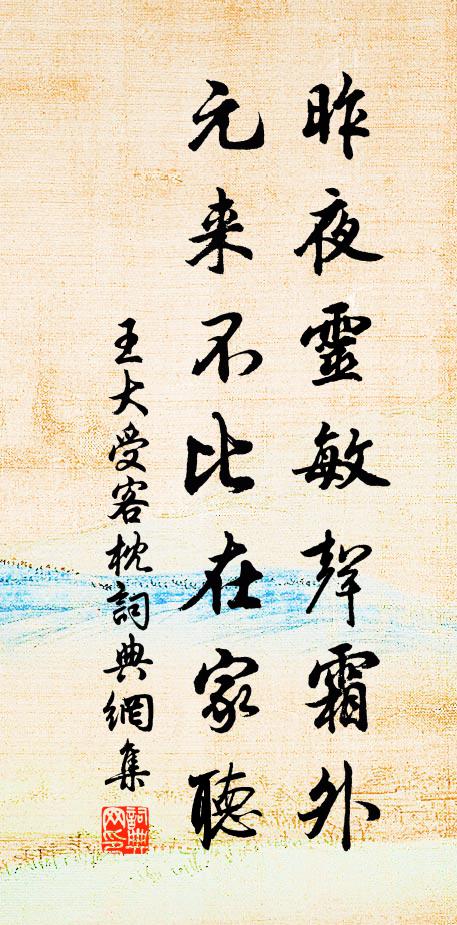 昨夜靈敏聲霜外
元来不比在家聽
王大受客枕詞典網集